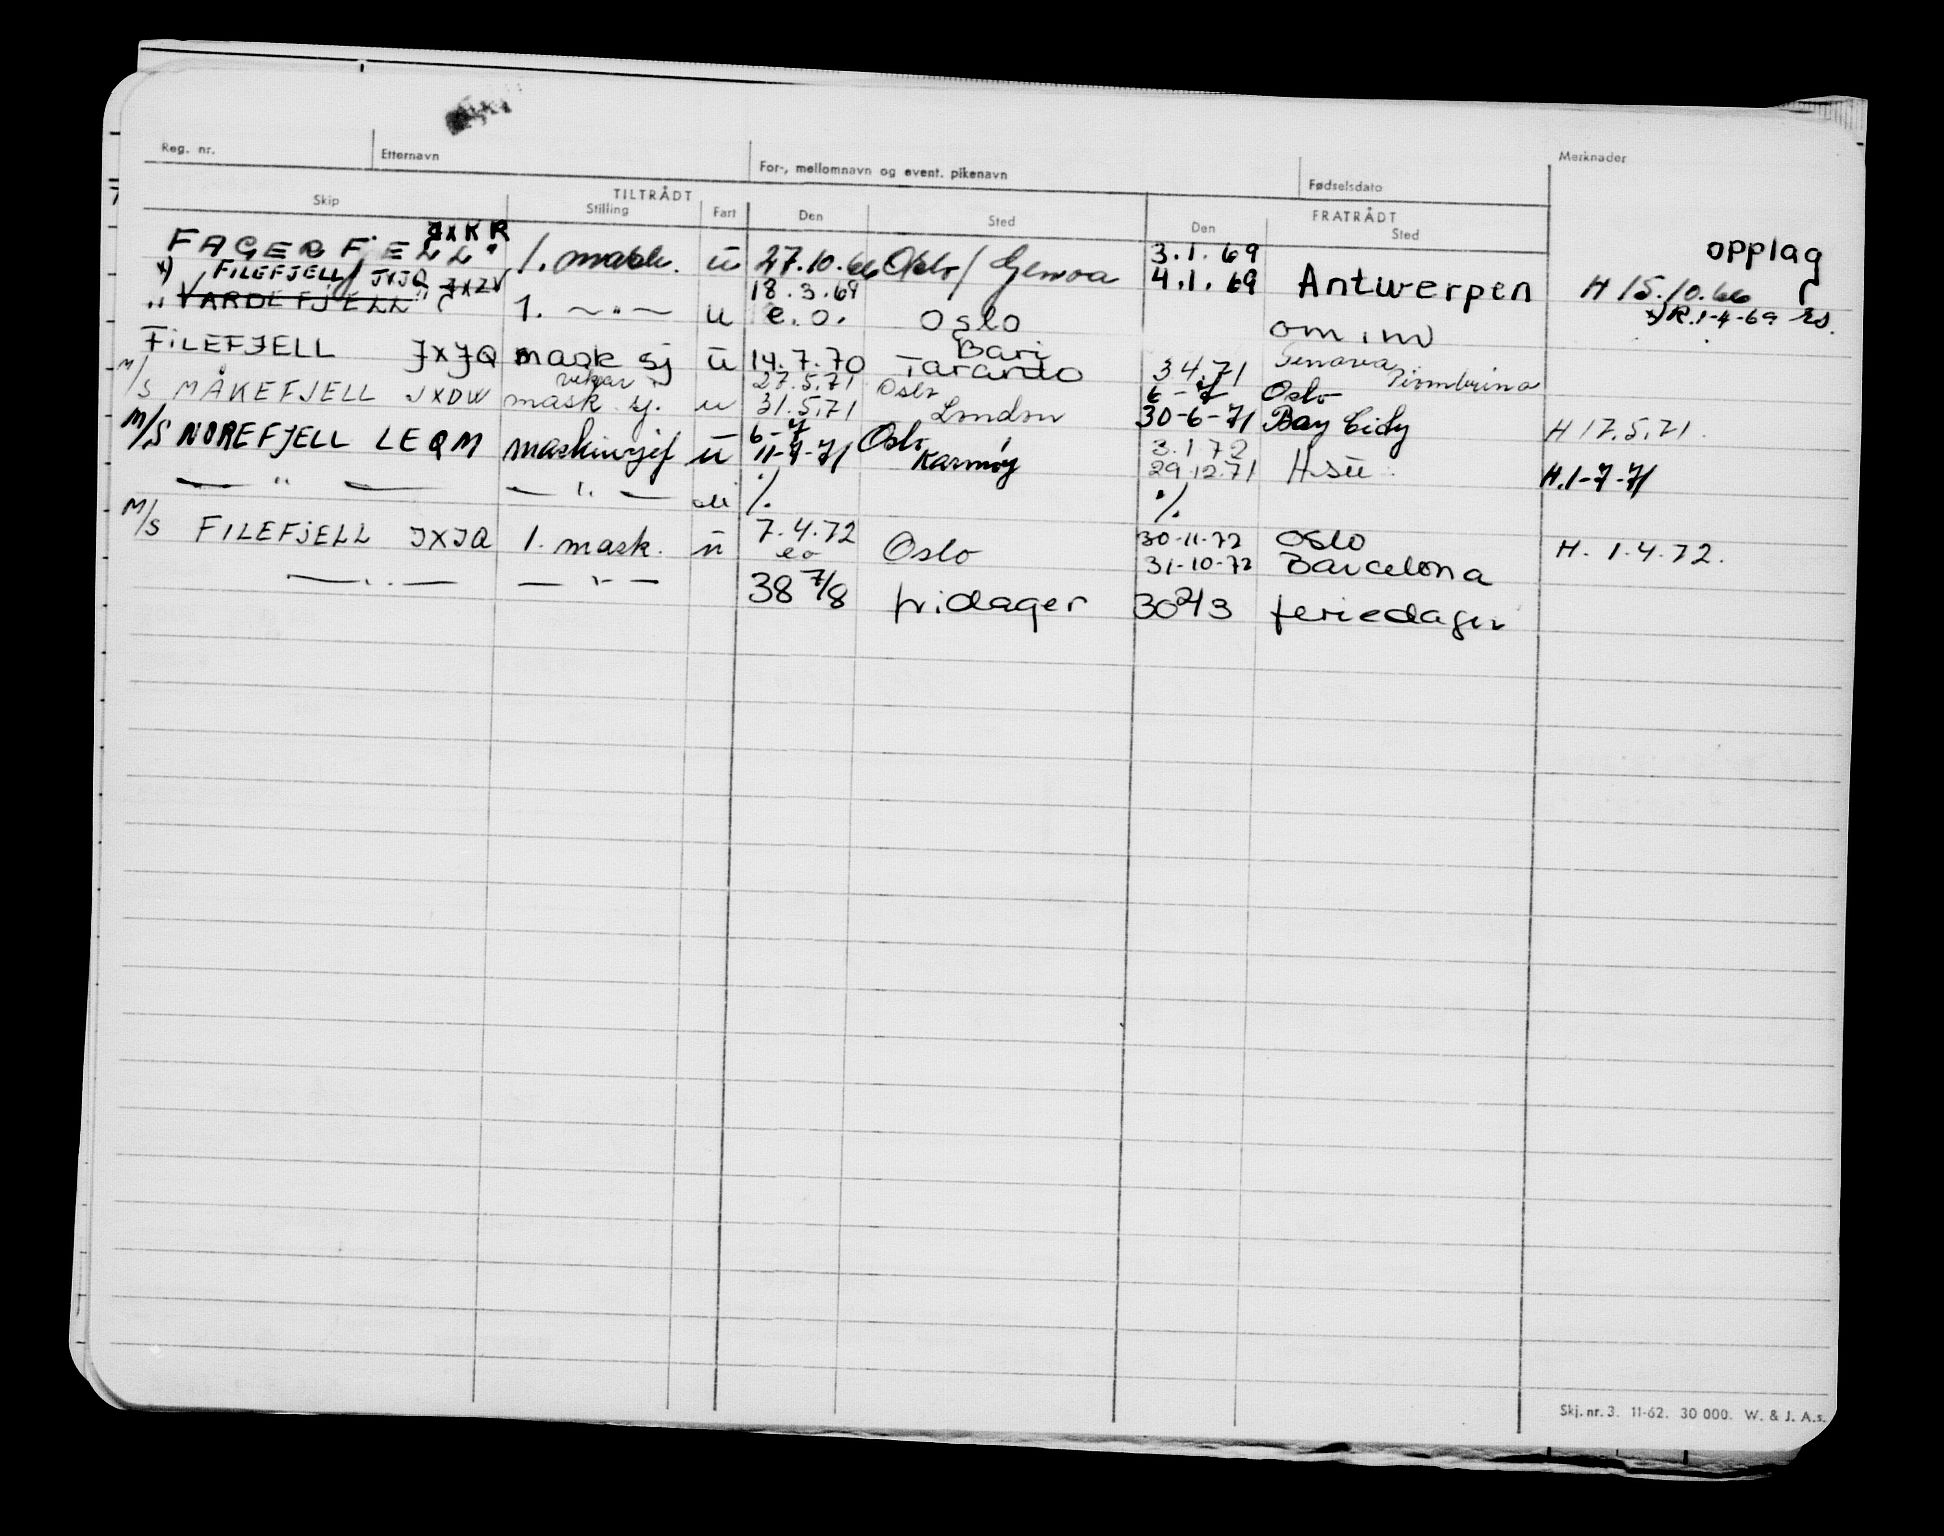 Reg. nr. Etternavn For-, mellomnavn og event. pikenavn Fødselsdato Merknader
TILTRÅDT FRATRÅDT
Skip Stilling Fart Den Sted Den Sted
JXKR opplag
FAGERFJELL" 1. mask. u 27.10.66 Oslo / Genoa 3.1.69
4.1.69 Antwerpen H 15.10.66
x) FILEFJELL / JXJQ JXZV 18.3.69 x) R.1-4-69 rs.
" VARDEFJELL" 1. —"— u e.o. Oslo om ind
FILEFJELL JXJQ mask sj u 14.7.70 Bari Taranto 3.4.71 Genova Piombino
vikar 27.5.71 Oslo 6-7 Oslo
M/S MÅKEFJELL JXDW mask. sj. u 31.5.71 London 30-6-71 Bay City H 17.5.71.
6-7 Oslo 3.1.72
M/S NOREFJELL LEQM maskinsjef u 11-7-71 Karmøy 29.12.71 H.1-7-71
— " — — " — ./. ./.
M/S FILEFJELL JXJQ 1. mask. u 7.4.72 eo Oslo 30-11-72 Oslo H. 1.4.72.
31-10-72 Barcelona
— " — — " — 38 7/8 fridager 30 2/3 feriedager
Skj. nr. 3. 11-62. 30 000. W. & J. A.s.